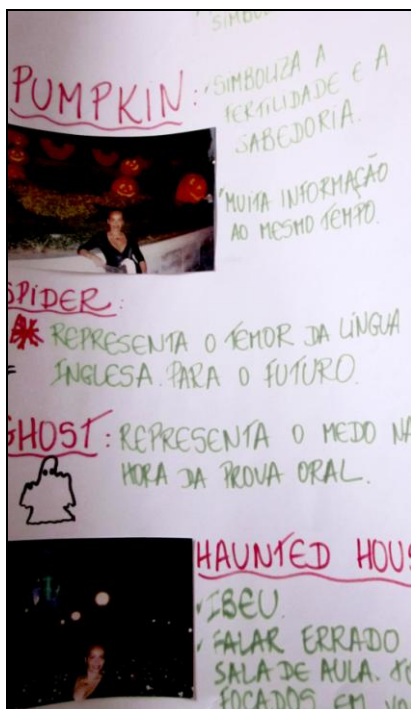 PUMPKIN: SIMBOLIZA A
FERTILIDADE E A
SABEDORIA.
MUITA INFORMAÇÃO
AO MESMO TEMPO.
SPIDER:
REPRESENTA O TEMOR DA LÍNGUA
INGLESA. PARA O FUTURO.
GHOST: REPRESENTA O MEDO NA
HORA DA PROVA ORAL.
HAUNTED HOUS
IBEU.
FALAR ERRADO
SALA DE AULA.
FOCADOS EM